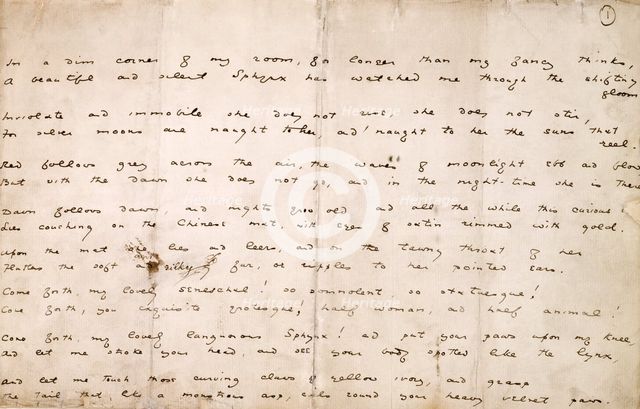 1
In a dim corner of my room, for longer than my fancy thinks,
A beautiful and silent Sphynx has watched me through the shifting
gloom
Inviolate and immobile she does not rise, she does not stir,
For silver moons are naught to her, and naught to her the suns that
reel.
Red follows grey across the air, the waves of moonlight ebb and flow
But with the dawn she does not go, and in the night-time she is there
Dawn follows dawn, and nights grow old and all the while this curious
Lies couching on the Chinese mat, with eyes of satin rimmed with gold.
Upon the mat she lies and leers, and on the tawny throat of her
Flutters the soft and silky fur, or ripples to her pointed ears.
Come forth, my lovely seneschal! so somnolent so statuesque!
Come forth, you exquisite grotesque, half woman, and half animal!
Come forth, my lovely languorous Sphynx! and put your paws upon my knee,
And let me stroke your head, and see your body spotted like the lynx,
And let me touch those curving claws of yellow ivory, and grasp
the tail that like a monstrous asp, coils round your heavy velvet paws.
Heritage
Heritage
Heritage
Heritage